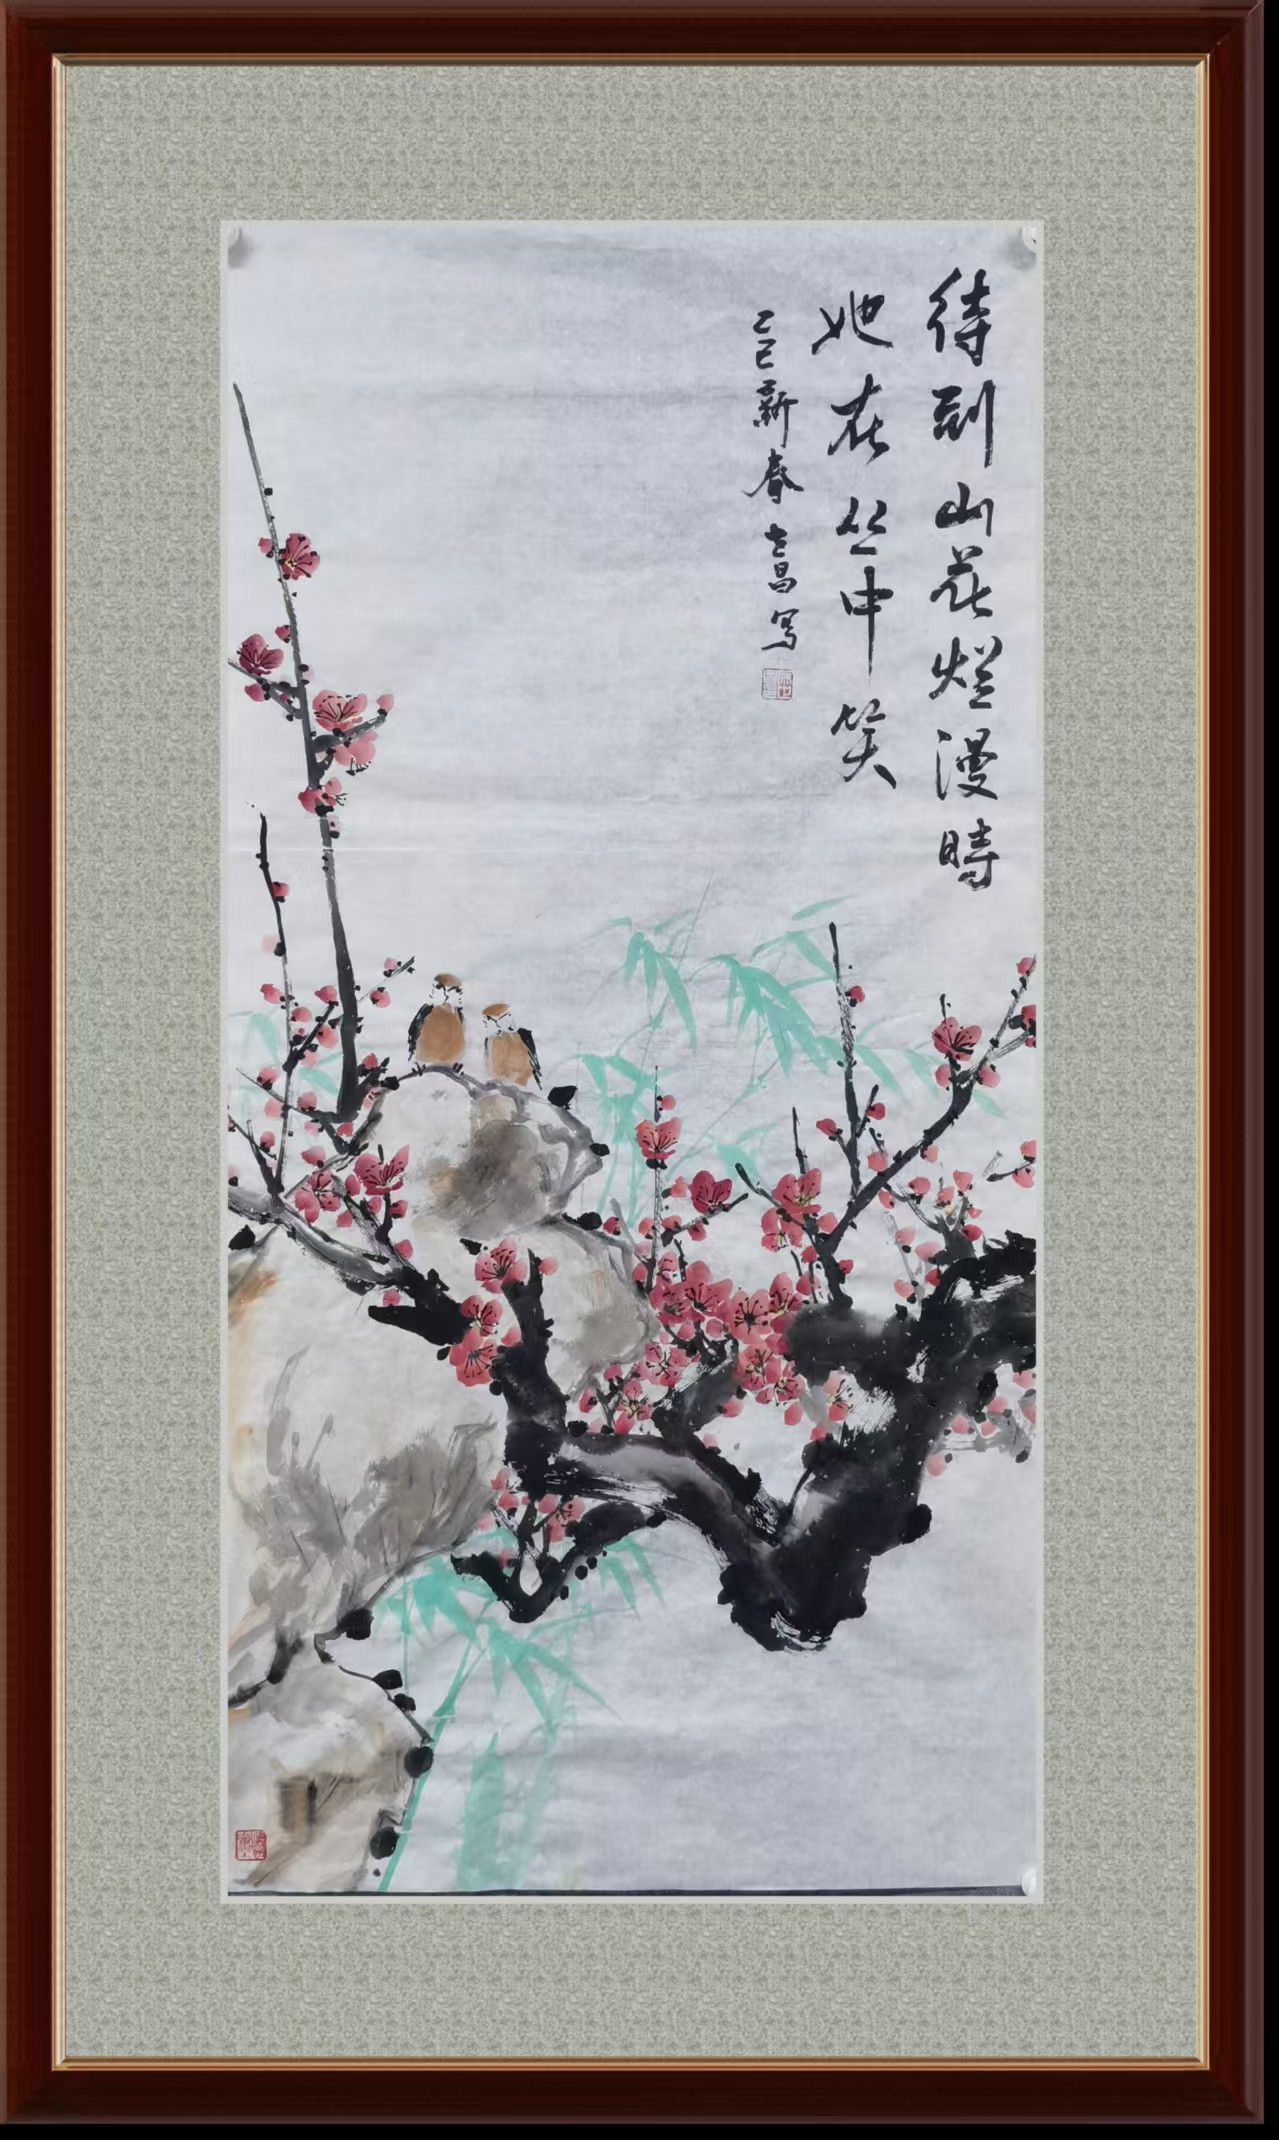 待到山花烂漫時
她在丛中笑
乙巳新春 志昌写